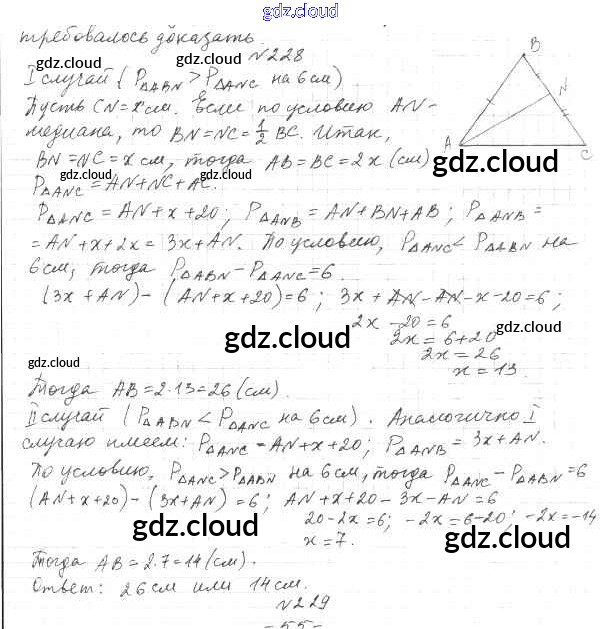 gdz.cloud
gdz.cloud gdz.cloud
требовалось доказать.
№228
I случай (P△ABN > P△ANC на 6 см)
gdz.cloud
Пусть CN = x см. Если по условию AN –
медиана, то BN = NC = 1/2 BC. Итак,
BN = NC = x см, тогда AB = BC = 2x (см)
B
N
A
C
gdz.cloud
P△ANC = AN + NC + AC.
P△ANC = AN + x + 20; P△ANB = AN + BN + AB; P△ANB =
= AN + x + 2x = 3x + AN. По условию, P△ANC < P△ABN на
6 см, тогда P△ABN – P△ANC = 6.
(3x + AN) – (AN + x + 20) = 6; 3x + AN – AN – x – 20 = 6;
2x – 20 = 6
2x = 6 + 20
2x = 26
x = 13.
gdz.cloud gdz.cloud
gdz.cloud
Тогда AB = 2·13 = 26 (см).
II случай (P△ABN < P△ANC на 6 см). Аналогично I
случаю имеем: P△ANC = AN + x + 20; P△ANB = 3x + AN.
По условию, P△ANC > P△ABN на 6 см, тогда P△ANC – P△ABN = 6
(AN + x + 20) – (3x + AN) = 6; AN + x + 20 – 3x – AN = 6
20 – 2x = 6; –2x = 6 – 20; –2x = –14
x = 7.
gdz.cloud gdz.cloud
Тогда AB = 2·7 = 14 (см).
Ответ: 26 см или 14 см.
№229
– 55 –
gdz.cloud gdz.cloud